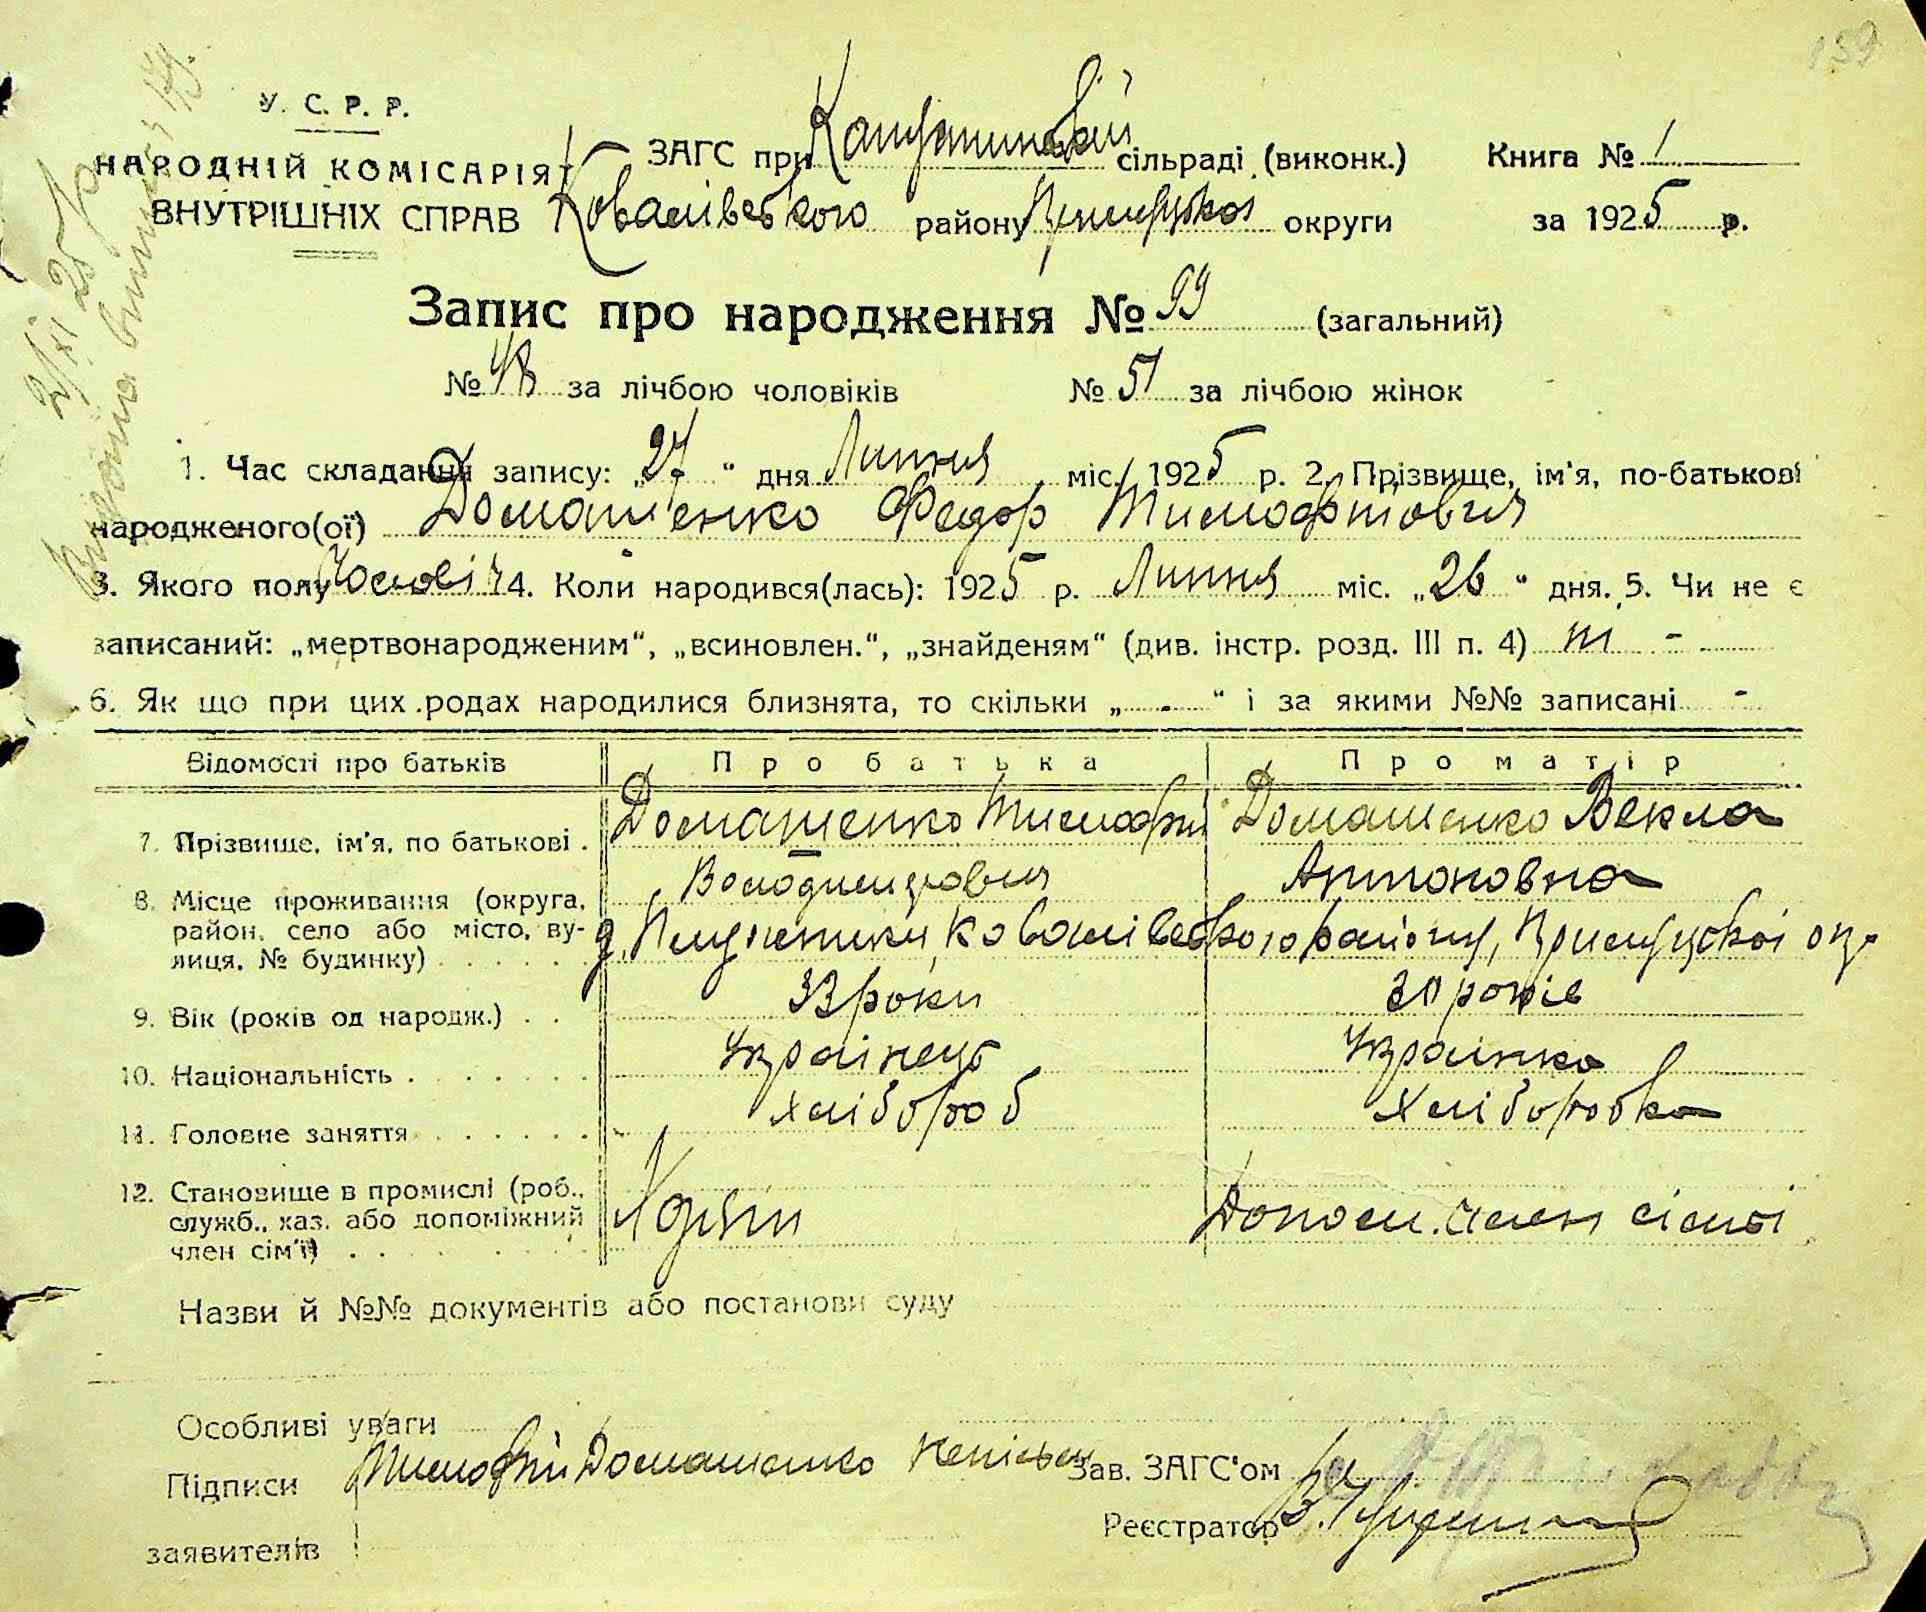 139
У. С. Р. Р.
НАРОДНІЙ КОМІСАРІЯТ
ВНУТРІШНІХ СПРАВ
ЗАГС при сільраді (виконк.)
Книга № 1
Ковалівського району Прилуцької округи
за 1925 р.
Запис про народження № 99 (загальний)
№ 48 за лічбою чоловіків № 51 за лічбою жінок
1. Час складання запису: „27 “ дня Липня міс. 1925 р. 2. Прізвище, ім'я, по-батькові
народженого(ої) Домашенко Федор Тимофтович
3. Якого полу Чоловіч 4. Коли народився(лась): 1925 р. Липня міс. „26 “ дня. 5. Чи не є
записаний: „мертвонародженим“, „всиновлен.“, „знайденям“ (див. інстр. розд. III п. 4) -
6. Як що при цих родах народилися близнята, то скільки „ - “ і за якими №№ записані -
Відомості про батьків Про батька Про матір
7. Прізвище, ім'я, по батькові . Домашенко Тимофій Домашенко Векла
Володимирович Антоновна
8. Місце проживання (округа,
район, село або місто, ву-
лиця, № будинку) Ковалівського району, Прилуцької окр.
9. Вік (років од народж.) . . 33 роки 30 років
10. Національність . . . . . . . Українець Українка
11. Головне заняття . . . . . . . Хлібороб Хлібородка
12. Становище в промислі (роб.,
служб., хаз. або допоміжний
член сім'ї) . . . . . . Хазяїн Допом. член сімʼї
Назви й №№ документів або постанови суду
Особливі уваги
Підписи Тимофій Домашенко
заявителів
Зав. ЗАГС'ом
Реєстратор